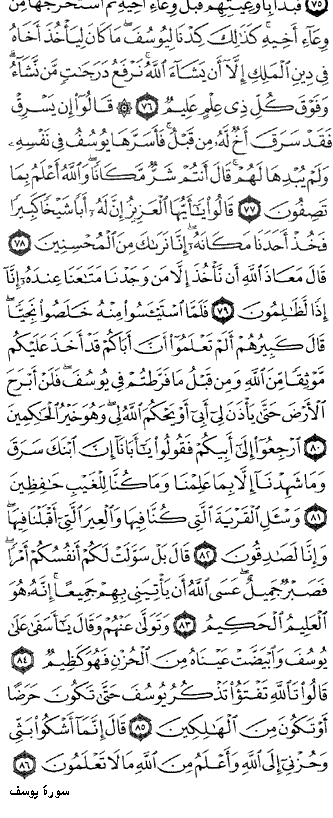 ٧٥ فَبَدَأَ بِأَوْعِيَتِهِمْ قَبْلَ وِعَآءِ أَخِيهِ ثُمَّ ٱسْتَخْرَجَهَا مِن
وِعَآءِ أَخِيهِ ۚ كَذَٰلِكَ كِدْنَا لِيُوسُفَ ۖ مَا كَانَ لِيَأْخُذَ أَخَاهُ
فِى دِينِ ٱلْمَلِكِ إِلَّآ أَن يَشَآءَ ٱللَّهُ ۚ نَرْفَعُ دَرَجَٰتٍ مَّن نَّشَآءُ ۗ
وَفَوْقَ كُلِّ ذِى عِلْمٍ عَلِيمٌ ٧٦ ۞ قَالُوٓا۟ إِن يَسْرِقْ
فَقَدْ سَرَقَ أَخٌ لَّهُۥ مِن قَبْلُ ۚ فَأَسَرَّهَا يُوسُفُ فِى نَفْسِهِۦ
وَلَمْ يُبْدِهَا لَهُمْ ۚ قَالَ أَنتُمْ شَرٌّ مَّكَانًا ۖ وَٱللَّهُ أَعْلَمُ بِمَا
تَصِفُونَ ٧٧ قَالُوا۟ يَٰٓأَيُّهَا ٱلْعَزِيزُ إِنَّ لَهُۥٓ أَبًا شَيْخًا كَبِيرًا
فَخُذْ أَحَدَنَا مَكَانَهُۥٓ ۖ إِنَّا نَرَىٰكَ مِنَ ٱلْمُحْسِنِينَ ٧٨
قَالَ مَعَاذَ ٱللَّهِ أَن نَّأْخُذَ إِلَّا مَن وَجَدْنَا مَتَٰعَنَا عِندَهُۥٓ إِنَّآ
إِذًا لَّظَٰلِمُونَ ٧٩ فَلَمَّا ٱسْتَيْـَٔسُوا۟ مِنْهُ خَلَصُوا۟ نَجِيًّا ۖ
قَالَ كَبِيرُهُمْ أَلَمْ تَعْلَمُوٓا۟ أَنَّ أَبَاكُمْ قَدْ أَخَذَ عَلَيْكُم
مَّوْثِقًا مِّنَ ٱللَّهِ وَمِن قَبْلُ مَا فَرَّطتُمْ فِى يُوسُفَ ۖ فَلَنْ أَبْرَحَ
ٱلْأَرْضَ حَتَّىٰ يَأْذَنَ لِىٓ أَبِىٓ أَوْ يَحْكُمَ ٱللَّهُ لِى ۖ وَهُوَ خَيْرُ ٱلْحَٰكِمِينَ
٨٠ ٱرْجِعُوٓا۟ إِلَىٰٓ أَبِيكُمْ فَقُولُوا۟ يَٰٓأَبَانَآ إِنَّ ٱبْنَكَ سَرَقَ
وَمَا شَهِدْنَآ إِلَّا بِمَا عَلِمْنَا وَمَا كُنَّا لِلْغَيْبِ حَٰفِظِينَ
٨١ وَسْـَٔلِ ٱلْقَرْيَةَ ٱلَّتِى كُنَّا فِيهَا وَٱلْعِيرَ ٱلَّتِىٓ أَقْبَلْنَا فِيهَا ۖ
وَإِنَّا لَصَٰدِقُونَ ٨٢ قَالَ بَلْ سَوَّلَتْ لَكُمْ أَنفُسُكُمْ أَمْرًا ۖ
فَصَبْرٌ جَمِيلٌ ۖ عَسَى ٱللَّهُ أَن يَأْتِيَنِى بِهِمْ جَمِيعًا ۚ إِنَّهُۥ هُوَ
ٱلْعَلِيمُ ٱلْحَكِيمُ ٨٣ وَتَوَلَّىٰ عَنْهُمْ وَقَالَ يَٰٓأَسَفَىٰ عَلَىٰ
يُوسُفَ وَٱبْيَضَّتْ عَيْنَاهُ مِنَ ٱلْحُزْنِ فَهُوَ كَظِيمٌ ٨٤
قَالُوا۟ تَٱللَّهِ تَفْتَؤُا۟ تَذْكُرُ يُوسُفَ حَتَّىٰ تَكُونَ حَرَضًا
أَوْ تَكُونَ مِنَ ٱلْهَٰلِكِينَ ٨٥ قَالَ إِنَّمَآ أَشْكُوا۟ بَثِّى
وَحُزْنِىٓ إِلَى ٱللَّهِ وَأَعْلَمُ مِنَ ٱللَّهِ مَا لَا تَعْلَمُونَ ٨٦
سورة يوسف